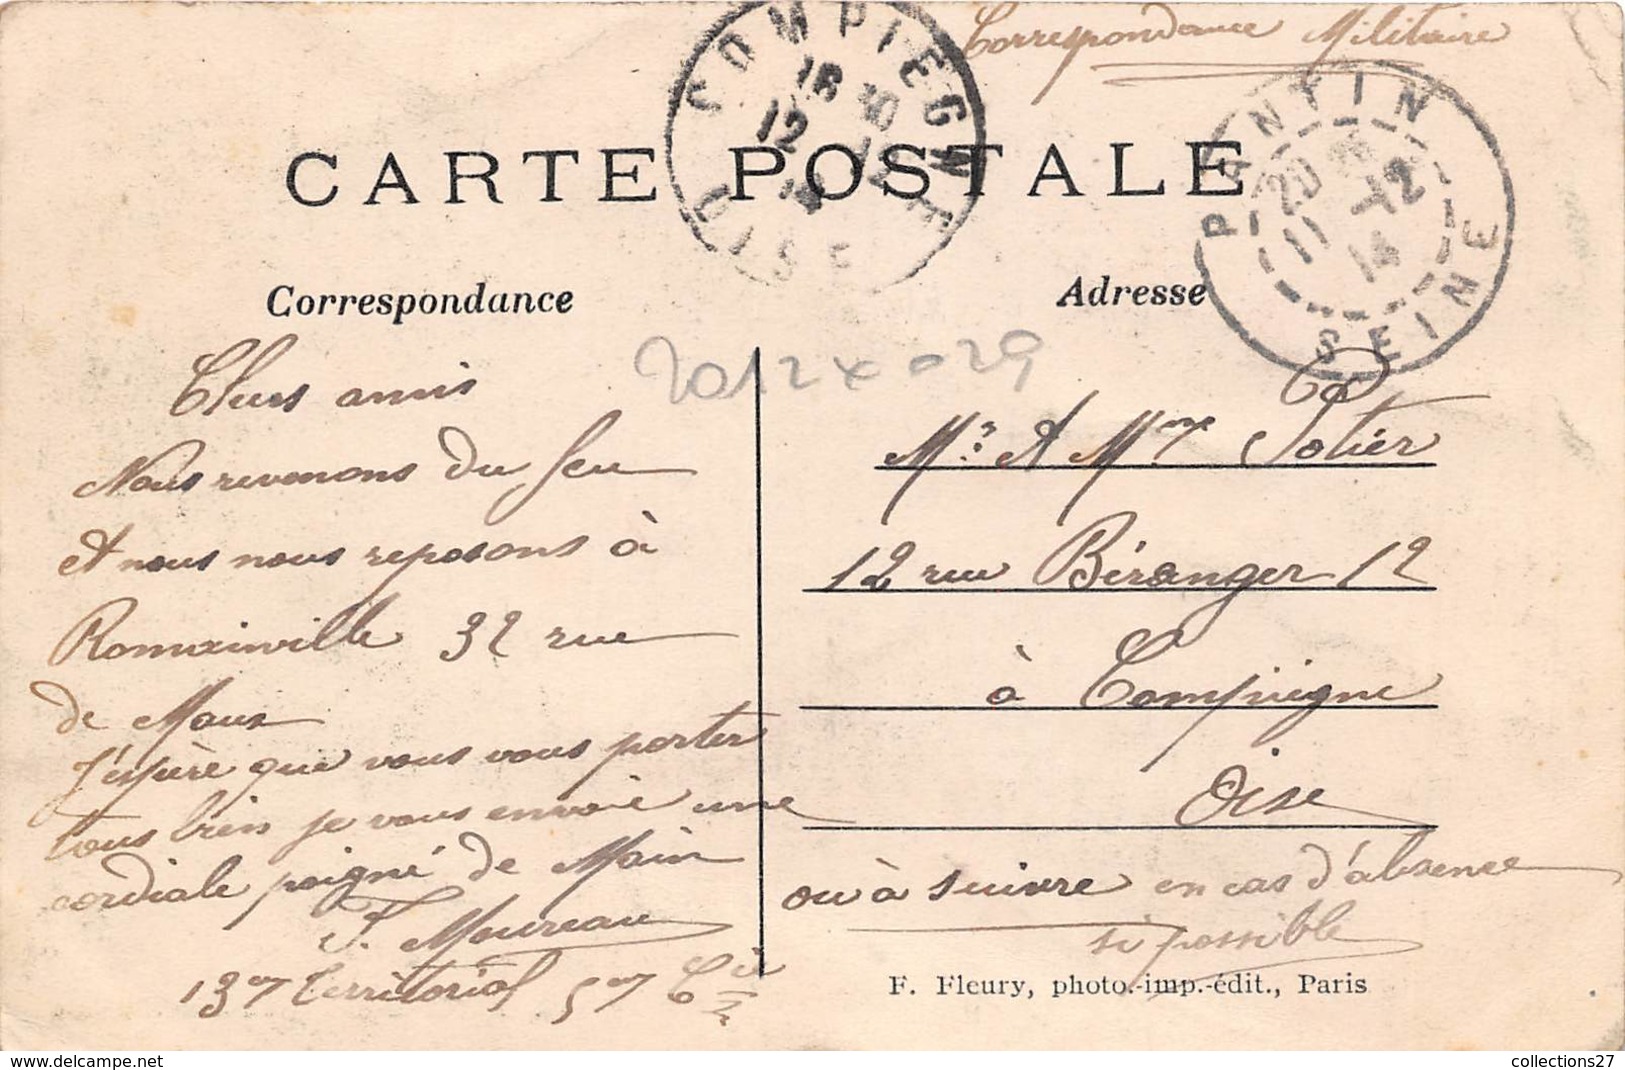 Correspondance Militaire
COMPIEGNE
OISE
18 30
12 12
14
PANTIN
SEINE
20
11 -12
14
CARTE POSTALE
Correspondance
Adresse
Chers amis
Nous revenons du feu
et nous nous reposons à
Romainville 32 rue
de Meaux
J'espère que vous vous porter
tous bien je vous envoie une
cordiale poigné de Main
F. Moureau
13em Territorial 5em Cie
Mr et Mme Potier
12 rue Béranger 12
à Compiègne
Oise
ou à suivre en cas d'absence
si possible
F. Fleury, photo.-imp.-édit., Paris
collections27
www.delcampe.net